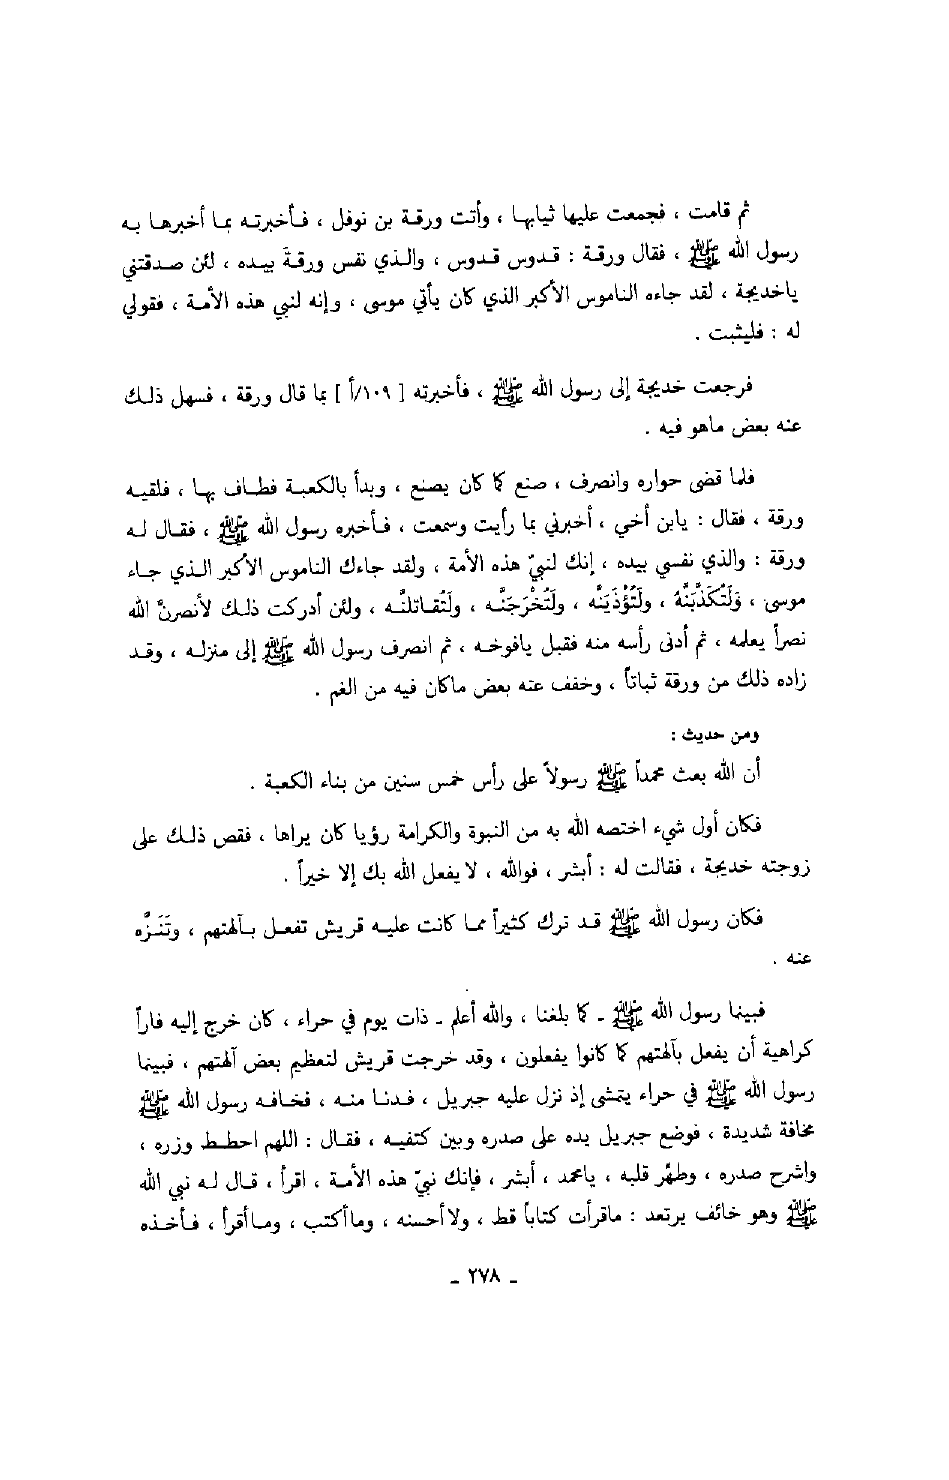 ثم قامت ، فجمعت عليها ثيابها ، وأتت ورقة بن نوفل ، فأخبرته بما أخبرها به
رسول الله ﷺ ، فقال ورقة : قدوس قدوس ، والذي نفس ورقةَ بيده ، لئن صدقتني
ياخديجة ، لقد جاءه الناموس الأكبر الذي كان يأتي موسى ، وإنه لنبي هذه الأمة ، فقولي
له : فليثبت .
فرجعت خديجة إلى رسول الله ﷺ ، فأخبرته [ ١٠٩/أ ] بما قال ورقة ، فسهل ذلك
عنه بعض ماهو فيه .
فلما قضى حواره وانصرف ، صنع كما كان يصنع ، وبدأ بالكعبة فطاف بها ، فلقيه
ورقة ، فقال : يابن أخي ، أخبرني بما رأيت وسمعت ، فأخبره رسول الله ﷺ ، فقال له
ورقة : والذي نفسي بيده ، إنك لنبيّ هذه الأمة ، ولقد جاءك الناموس الأكبر الذي جاء
موسى ، وَلَتُكَذَّبَنَّهُ ، ولَتُؤْذَيَنَّه ، ولَتُخْرَجَنَّه ، ولَتُقاتلنَّه ، ولئن أدركت ذلك لأنصرنَّ الله
نصراً يعلمه ، ثم أدنى رأسه منه فقبل يافوخه ، ثم انصرف رسول الله ﷺ إلى منزله ، وقد
زاده ذلك من ورقة ثباتاً ، وخفف عنه بعض ماكان فيه من الغم .
ومن حديث :
أن الله بعث محمداً ﷺ رسولاً على رأس خمس سنين من بناء الكعبة .
فكان أول شيء اختصه الله به من النبوة والكرامة رؤيا كان يراها ، فقص ذلك على
زوجته خديجة ، فقالت له : أبشر ، فوالله ، لا يفعل الله بك إلا خيراً .
فكان رسول الله ﷺ قد ترك كثيراً مما كانت عليه قريش تفعل بآلهتهم ، وتَنَزَّه
عنه .
فبينما رسول الله ﷺ ـ كما بلغنا ، والله أعلم ـ ذات يوم في حراء ، كان خرج إليه فاراً
كراهية أن يفعل بآلهتهم كما كانوا يفعلون ، وقد خرجت قريش لتعظيم بعض آلهتهم ، فبينما
رسول الله ﷺ في حراء يتمشى إذ نزل عليه جبريل ، فدنا منه ، فخافه رسول الله ﷺ
مخافة شديدة ، فوضع جبريل يده على صدره وبين كتفيه ، فقال : اللهم احطط وزره ،
واشرح صدره ، وطهِّر قلبه ، يامحمد ، أبشر ، فإنك نبيّ هذه الأمة ، اقرأ ، قال له نبي الله
ﷺ وهو خائف يرتعد : ماقرأت كتاباً قط ، ولاأحسنه ، وماأكتب ، وماأقرأ ، فأخذه
ـ ٢٧٨ ـ